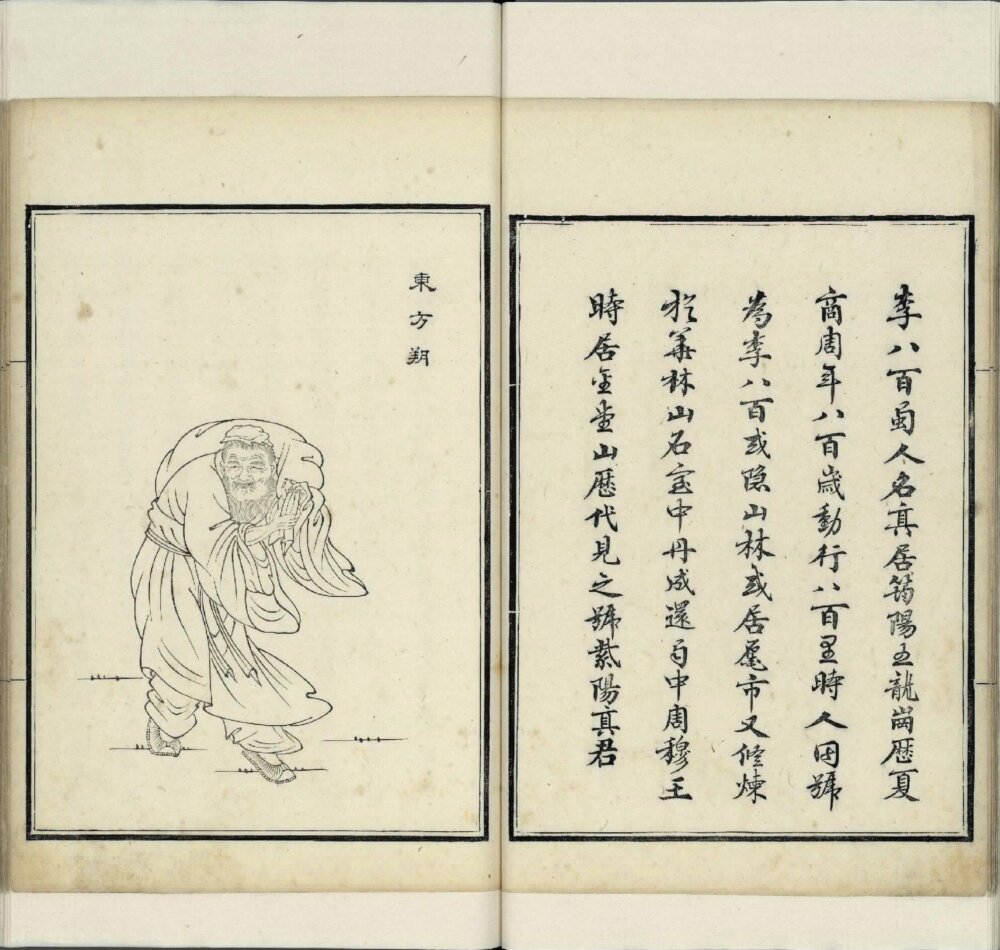 李八百蜀人名真居筠陽五龍崗歷夏
商周年八百歲動行八百里時人因號
為李八百或隱山林或居廛市又修煉
於華林山石室中丹成還蜀中周穆王
時居金堂山歷代見之號紫陽真君
東方朔